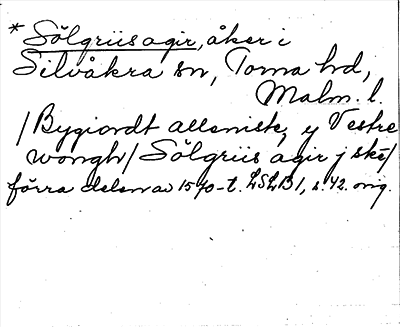 * Sölgriis agir, åker i
Silvåkra sn, Torna hd,
Malm. l.
/Bygiordt allenist, y Vestre
wongh/ Sölgriis agir j ske/
förra delen av 1570-t. LSLB 1, s. 42. orig.